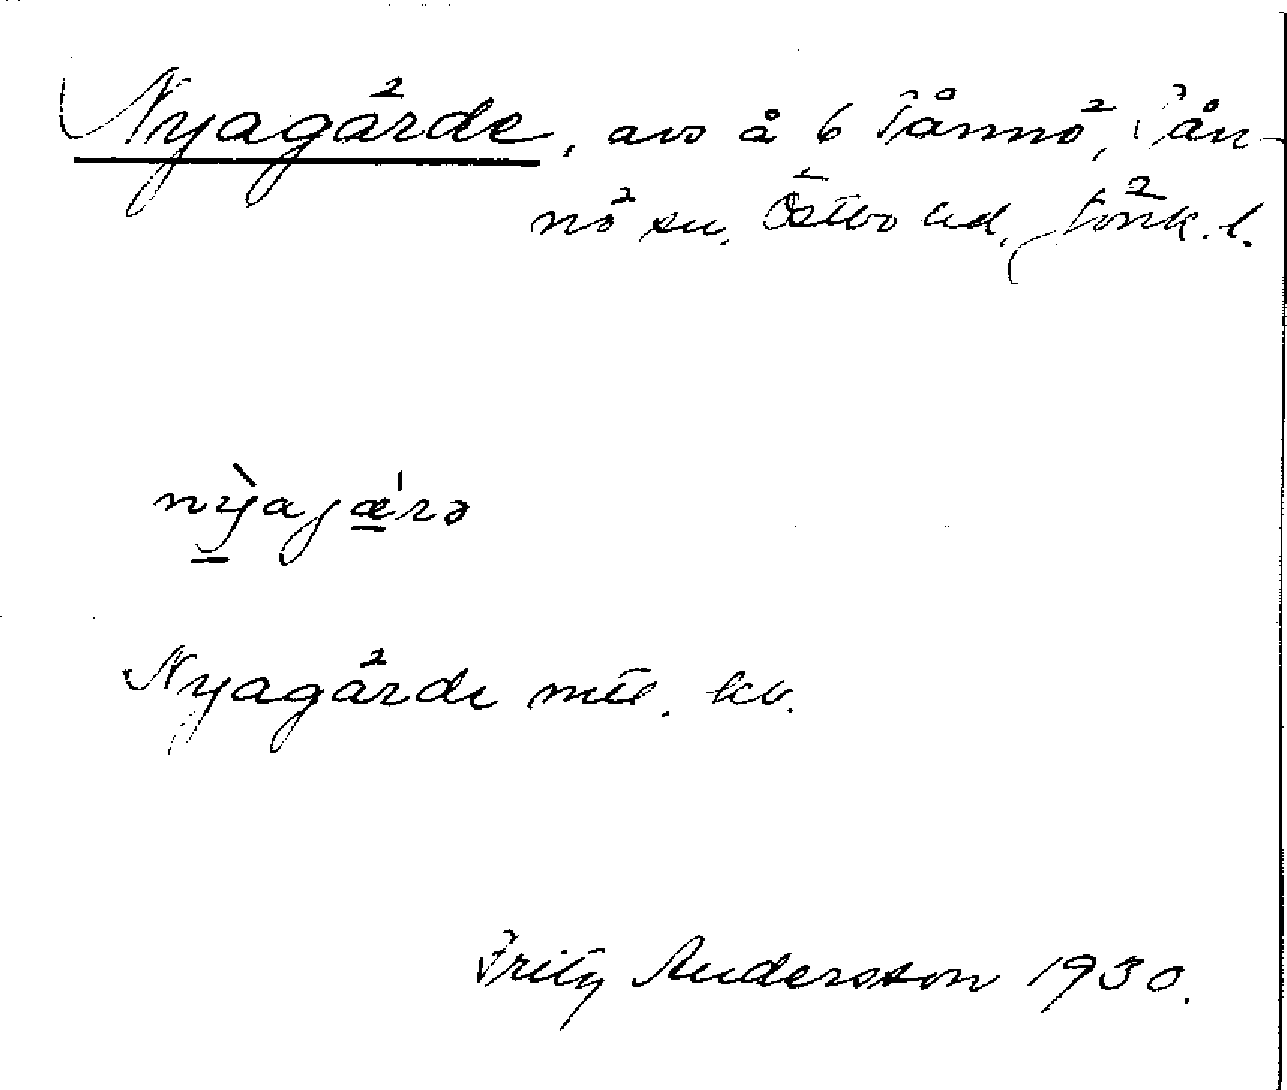 Nyagärde, avs å 6 Tånnö, Tån-
nö sn, Östbo hd, Jönk. l.
nỳ̱ajǽ̱rə
Nyagärde mtl. kv.
Fritz Andersson 1930.